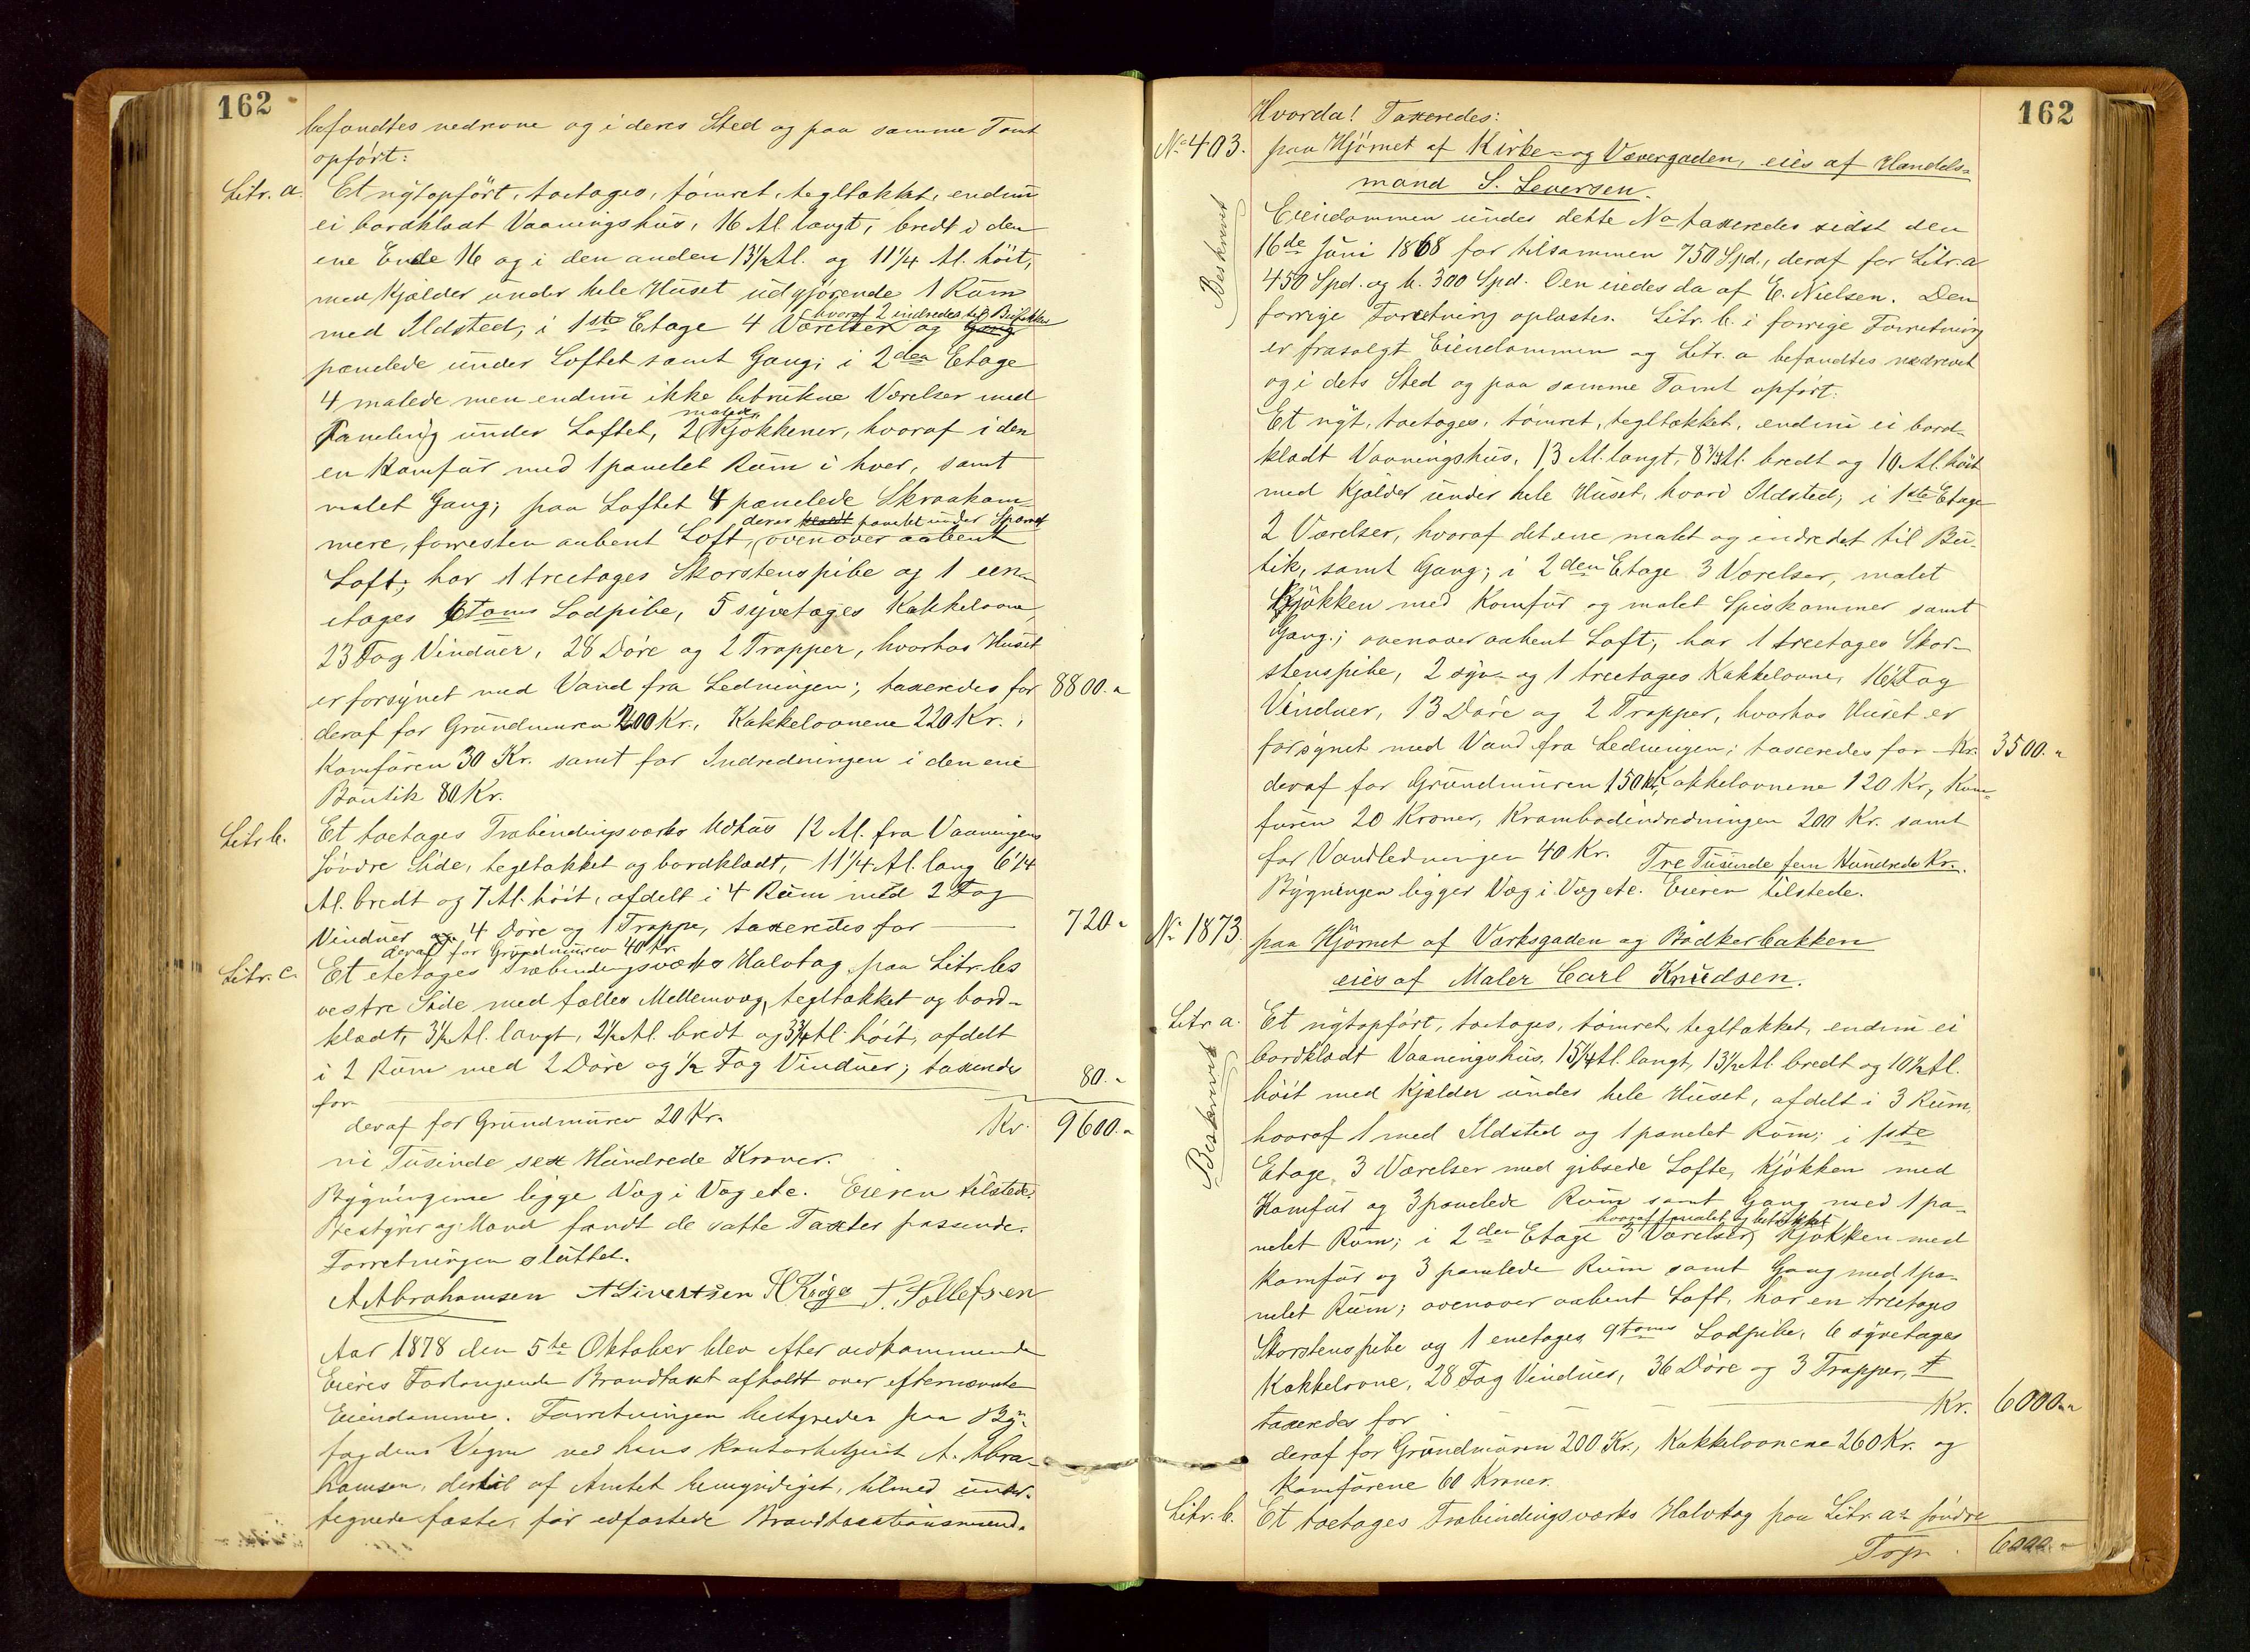 162
befandtes nedrevne og i deres Sted og paa samme Tomt
opført:
Litr. a. Et nytopført, toetages, tømret, tegltækket, endnu
ei bordklædt Vaaningshus, 16 Al. langt, bredt i den
ene Ende 16 og i den anden 13½ Al. og 11¼ Al. høit,
med Kjælder under hele Huset udgjørende 1 Rum
hvoraf 2 indredes til Butikker
med Ildsted; i 1ste Etage 4 Værelser og Gang
panelede under Loftet samt Gang; i 2den Etage
4 malede men endnu ikke betrukne Værelser med
malede
Paneling under Loftet, 2 Kjøkkener, hvoraf i den
en Komfur med 1 panelet Rum i hver, samt
malet Gang; paa Loftet 4 panelede Skraakam-
deraf panelet under Sparret
mere, forresten aabent Loft, ovenover aabent
Loft; har 1 treetages Skorstenspibe og 1 een-
etages 6toms Lodpibe, 5 syvetages Kakkelovne,
23 Fag Vinduer, 28 Døre og 2 Trapper, hvorhos Huset
er forsynet med Vand fra Ledningen; taxeredes for 8800.-
deraf for Grundmuren 200 Kr., Kakkelovnene 220 Kr.,
Komfuren 30 Kr. samt for Indredningen i den ene
Boutik 80 Kr.
Litr. b. Et toetages Træbindingsværks Udhus 12 Al. fra Vaaningens
søndre Side, tegltækket og bordklædt, 11¼ Al. lang 6¼
Al. bredt og 7 Al. høit, afdelt i 4 Rum med 2 Fag
Vinduer og 4 Døre og 1 Trappe, taxeredes for 720.-
deraf for Grundmuren 40 Kr.
Litr. c. Et etetages Træbindingsværks Halvtag paa Litr. bs
vestre Side med fælles Mellemvæg, tegltækket og bord-
klædt, 3½ Al. langt, 2½ Al. bredt og 3¾ Al. høit, afdelt
i 2 Rum med 2 Døre og ½ Fag Vinduer; taxeredes
for 80.-
deraf for Grundmuren 20 Kr. Kr. 9600.-
ni Tusinde sex Hundrede Kroner.
Bygningerne ligge Væg i Væg etc. Eieren tilstede.
Bestyrer og Mænd fandt de satte Taxter passende.
Forretningen sluttet.
A Abrahamsen A Sivertsen H Krøge T. Tollefsen
Aar 1878 den 5te Oktober blev efter vedkommende
Eieres Forlangende Brandtaxt afholdt over efternævnte
Eiendomme. Forretningen bestyredes paa By-
fogdens Vegne ved hans Kontorbetjent A. Abra-
hamsen, dertil af Amtet bemyndiget, tilmed under-
tegnede faste, før edfæstede Brandtaxationsmænd.
162
Hvorda! Taxeredes:
No 403. paa Hjørnet af Kirke- og Vævergaden, eies af Handels-
mand S. Seversen.
Beskrevet
Eiendommen under dette No taxeredes sidst den
16de Juni 1868 for tilsammen 750 Spd., deraf for Litr. a
450 Spd. og b. 300 Spd. Den eiedes da af E. Nielsen. Den
forrige Forretning oplæstes. Litr. b. i forrige Forretning
er frasolgt Eiendommen og Litr. a befandtes nedrevet
og i dets Sted og paa samme Tomt opført:
Et nyt, toetages, tømret, tegltækket, endnu ei bord-
klædt Vaaningshus, 13 Al. langt, 8¾ Al. bredt og 10 Al. høit
med Kjælder under hele Huset, hvori Ildsted; i 1ste Etage
2 Værelser, hvoraf det ene malet og indredet til Bu-
tik, samt Gang; i 2den Etage 3 Værelser, malet
Kjøkken med Komfur og malet Spiskammer samt
Gang; ovenover aabent Loft; har 1 treetages Skor-
stenspibe, 2 syv- og 1 treetages Kakkelovne, 16½ Fag
Vinduer, 13 Døre og 2 Trapper, hvorhos Huset er
forsynet med Vand fra Ledningen; taxeredes for Kr. 3500.-
deraf for Grundmuren 150 Kr, Kakkelovnene 120 Kr, Kom-
furen 20 Kroner, Krambodindredningen 200 Kr. samt
for Vandledningen 40 Kr. Tre Tusinde fem Hundrede Kr.
Bygningen ligger Væg i Væg etc. Eieren tilstede.
No 1873. paa Hjørnet af Værksgaden og Bødkerbakken
eies af Maler Carl Knudsen.
Litr. a. Et nytopført, toetages, tømret, tegltækket, endnu ei
Beskrevet
bordklædt Vaaningshus, 15¼ Al. langt, 13½ Al. bredt og 10½ Al.
høit med Kjælder under hele Huset, afdelt i 3 Rum,
hvoraf 1 med Ildsted og 1 panelet Rum; i 1ste
Etage 3 Værelser med gibsede Lofte, Kjøkken med
Komfur og 3 panelede Rum samt Gang med 1 pa-
hvoraf 1 malet og betrukket
nelet Rum; i 2den Etage 3 Værelser, Kjøkken med
Komfur og 3 panelede Rum samt Gang med 1 pa-
nelet Rum; ovenover aabent Loft, har en treetages
Skorstenspibe og 1 enetages 9toms Lodpibe, 6 syvetages
Kakkelovne, 28 Fag Vinduer, 36 Døre og 3 Trapper,
taxeredes for Kr. 6000.-
deraf for Grundmuren 200 Kr., Kakkelovnene 260 Kr. og
Komfurene 60 Kroner.
Litr. b. Et toetages Træbindingsværks Halvtag paa Litr. as søndre
Tspr. 6000.-